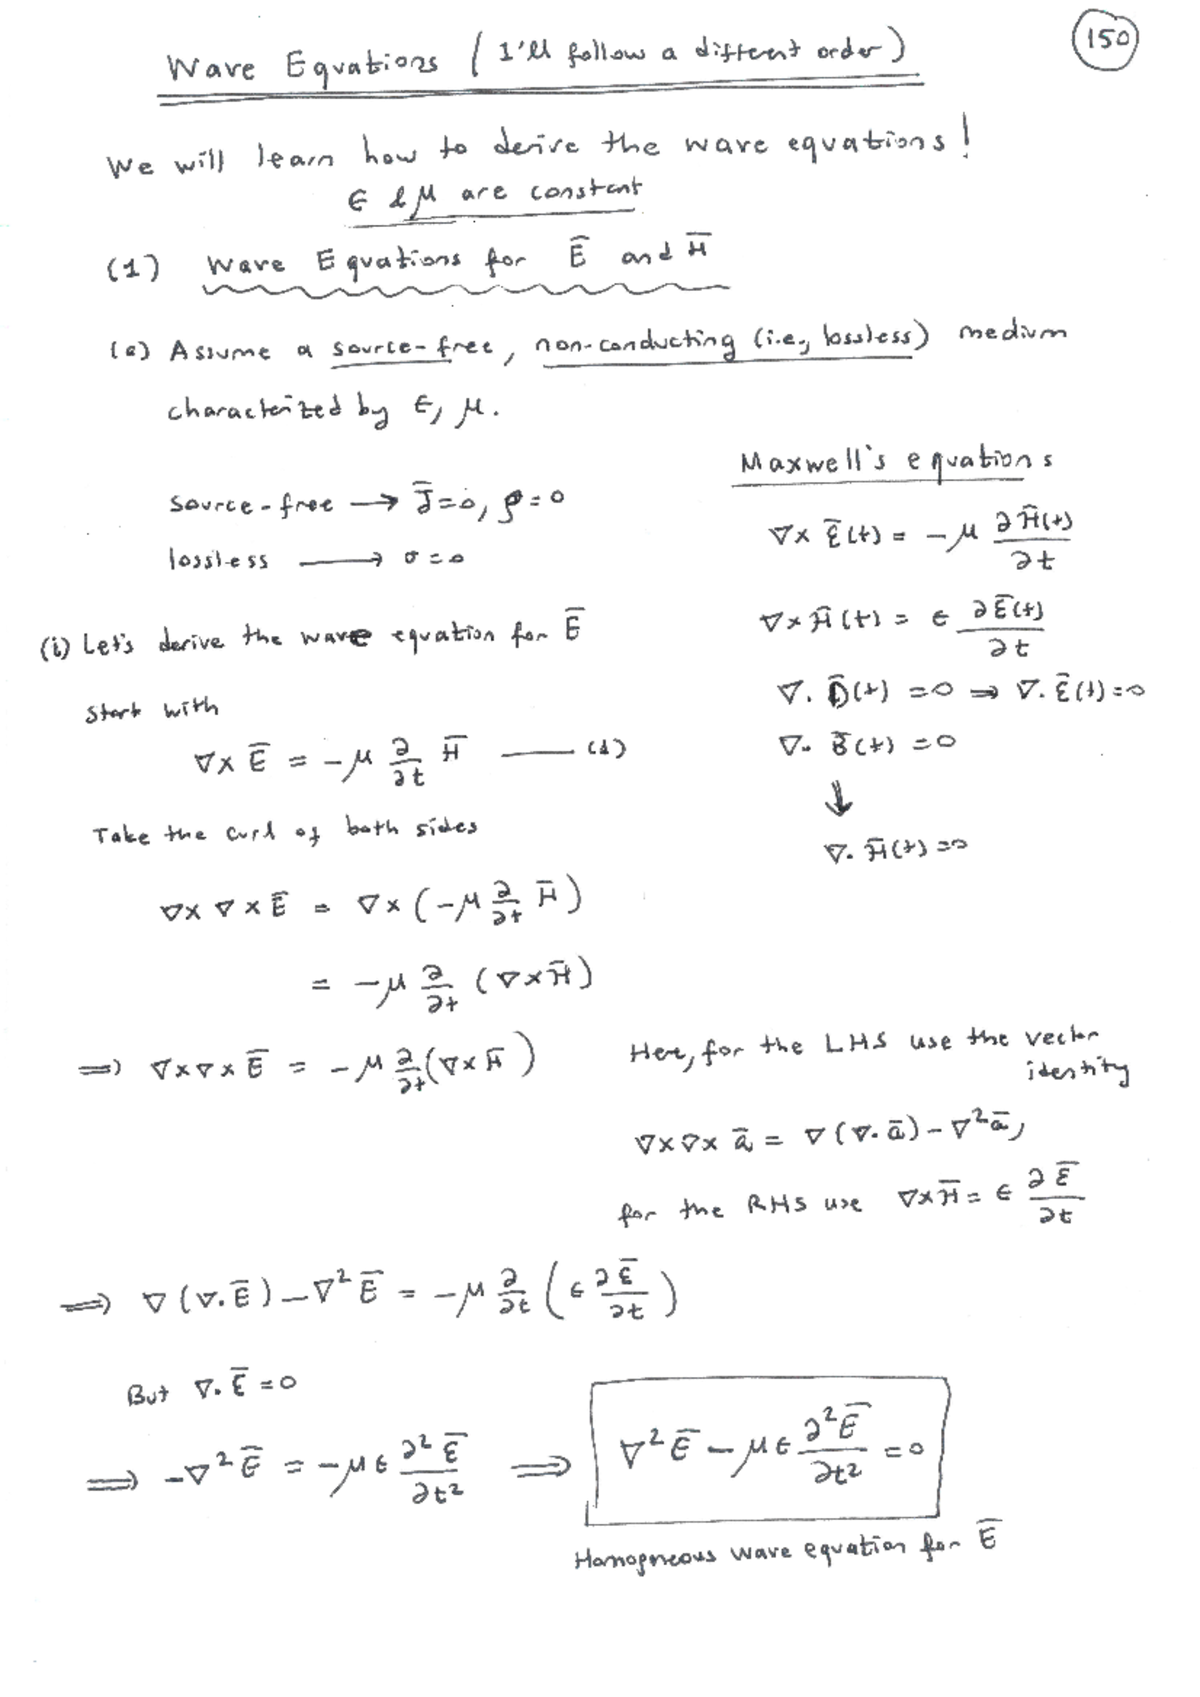 150
Wave Equations (I'll follow a different order)
We will learn how to derive the wave equations!
ϵ & μ are constant
(1) Wave Equations for E̅ and H̅
(a) Assume a source-free, non-conducting (i.e, lossless) medium
characterized by ϵ, μ.
Source-free → J̅=0, ρ=0
lossless → σ=0
Maxwell's equations
∇× E̅(t) = -μ ∂H̅(t)/∂t
∇× H̅(t) = ϵ ∂E̅(t)/∂t
∇. D̅(t) =0 ⇒ ∇. E̅(t)=0
∇. B̅(t) =0
↓
∇. H̅(t)=0
(i) Let's derive the wave equation for E̅
Start with
∇× E̅ = -μ ∂/∂t H̅ —— (1)
Take the curl of both sides
∇× ∇× E̅ = ∇× (-μ ∂/∂t H̅)
= -μ ∂/∂t (∇×H̅)
⇒ ∇×∇× E̅ = -μ ∂/∂t (∇× H̅)
Here, for the LHS use the vector
identity
∇×∇× a̅ = ∇(∇. a̅) - ∇²a̅,
for the RHS use ∇×H̅ = ϵ ∂E̅/∂t
⇒ ∇(∇.E̅) - ∇² E̅ = -μ ∂/∂t (ϵ ∂E̅/∂t)
But ∇. E̅ =0
⇒ -∇² E̅ = -μϵ ∂²E̅/∂t² ⇒ ∇² E̅ - μϵ ∂²E̅/∂t² =0
Homogneous wave equation for E̅